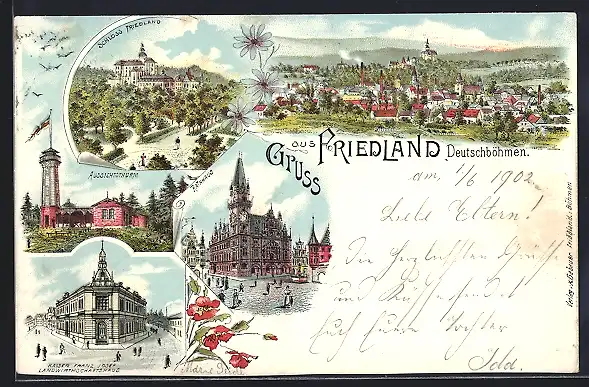 SCHLOSS FRIEDLAND
GRUSS AUS FRIEDLAND Deutschböhmen.
AUSSICHTSTHURM
am, 1/6 1902.
Liebe Eltern!
Die herzlichsten Grüße
und Küsse sendet
Euch Eure Tochter
Ida.
KAISER FRANZ JOSEF
LANDWIRTHSCHAFTSHAUS